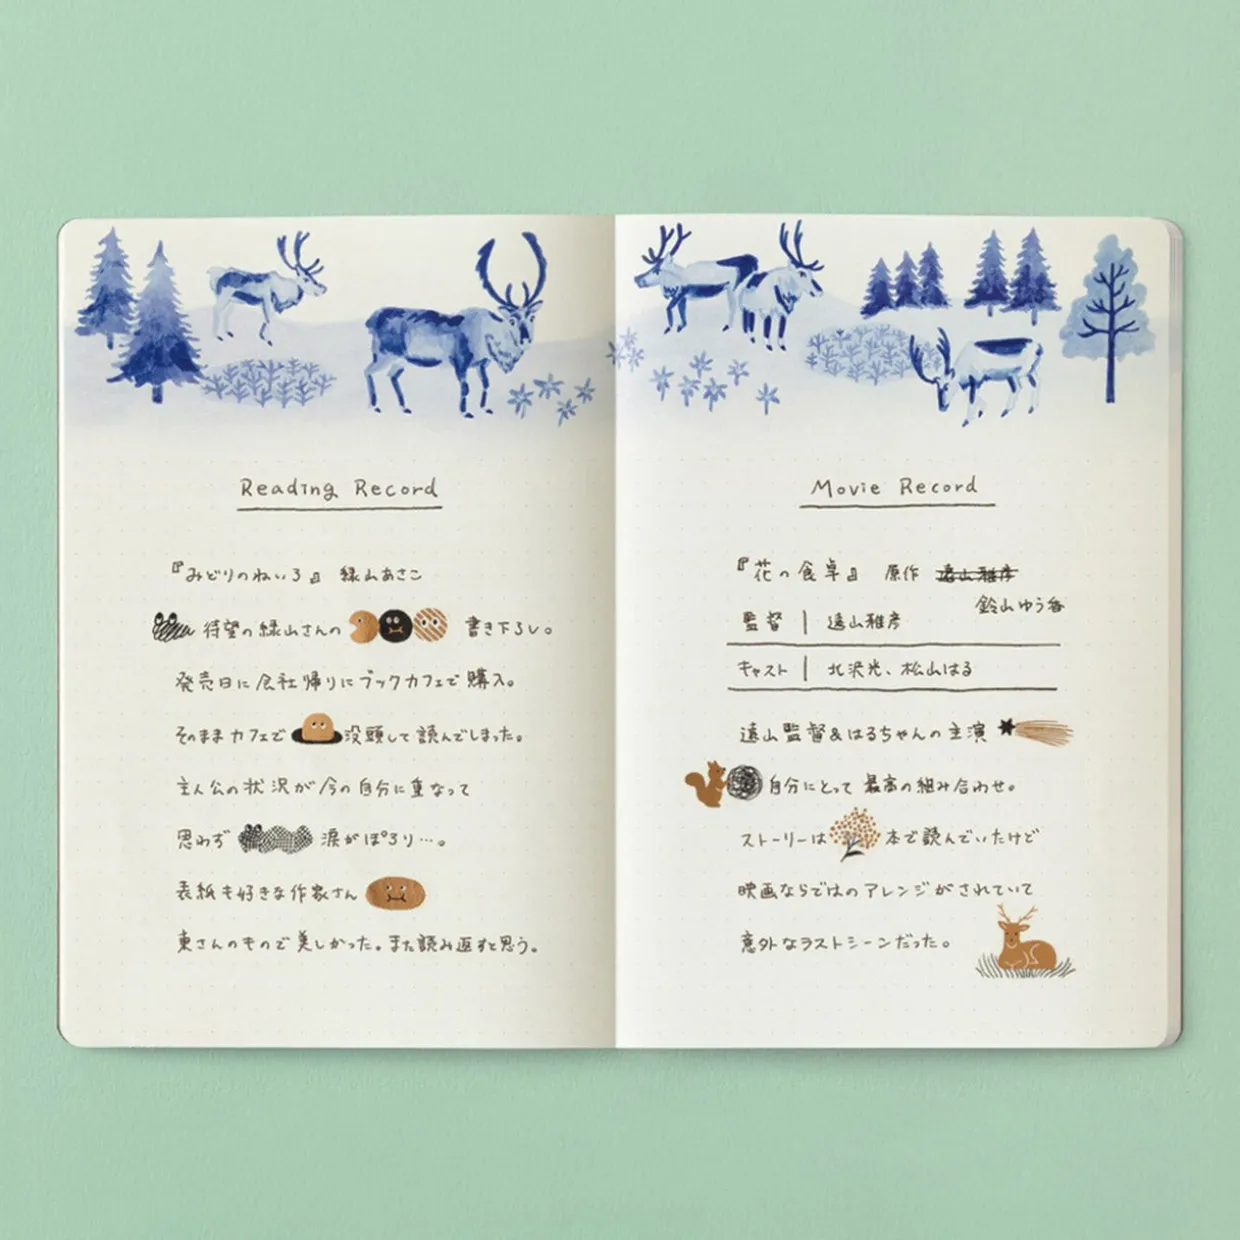 Reading Record
『みどりのねいろ』 緑山あさこ
待望の緑山さんの 書き下ろし。
発売日に会社帰りにブックカフェで購入。
そのままカフェで 没頭して読んでしまった。
主人公の状況が今の自分に重なって
思わず 涙がぽろり…。
表紙も好きな作家さん
東さんのもので美しかった。また読み返すと思う。
Movie Record
『花の食卓』 原作 遠山雅彦
鈴山ゆう香
監督 | 遠山雅彦
キャスト | 北沢光、松山はる
遠山監督&はるちゃんの主演
自分にとって最高の組み合わせ。
ストーリーは 本で読んでいたけど
映画ならではのアレンジがされていて
意外なラストシーンだった。